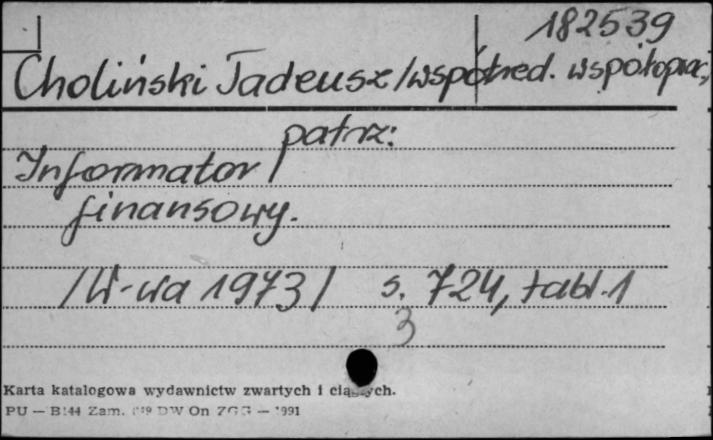 182539
Choliński Tadeusz /współred. współoprac,
patrz:
Informator
finansowy.
/W-wa 1973/ s. 724, tabl. 1
3
Karta katalogowa wydawnictw zwartych i ciągłych.
PU — B144 Zam. DW On — 1991